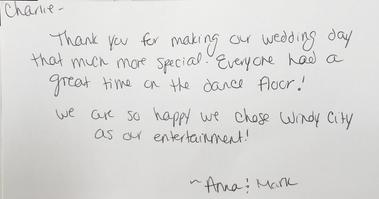 Charlie -
Thank you for making our wedding day
that much more special. Everyone had a
great time on the dance floor!
We are so happy we chose Windy City
as our entertainment!
~ Anna & Mark